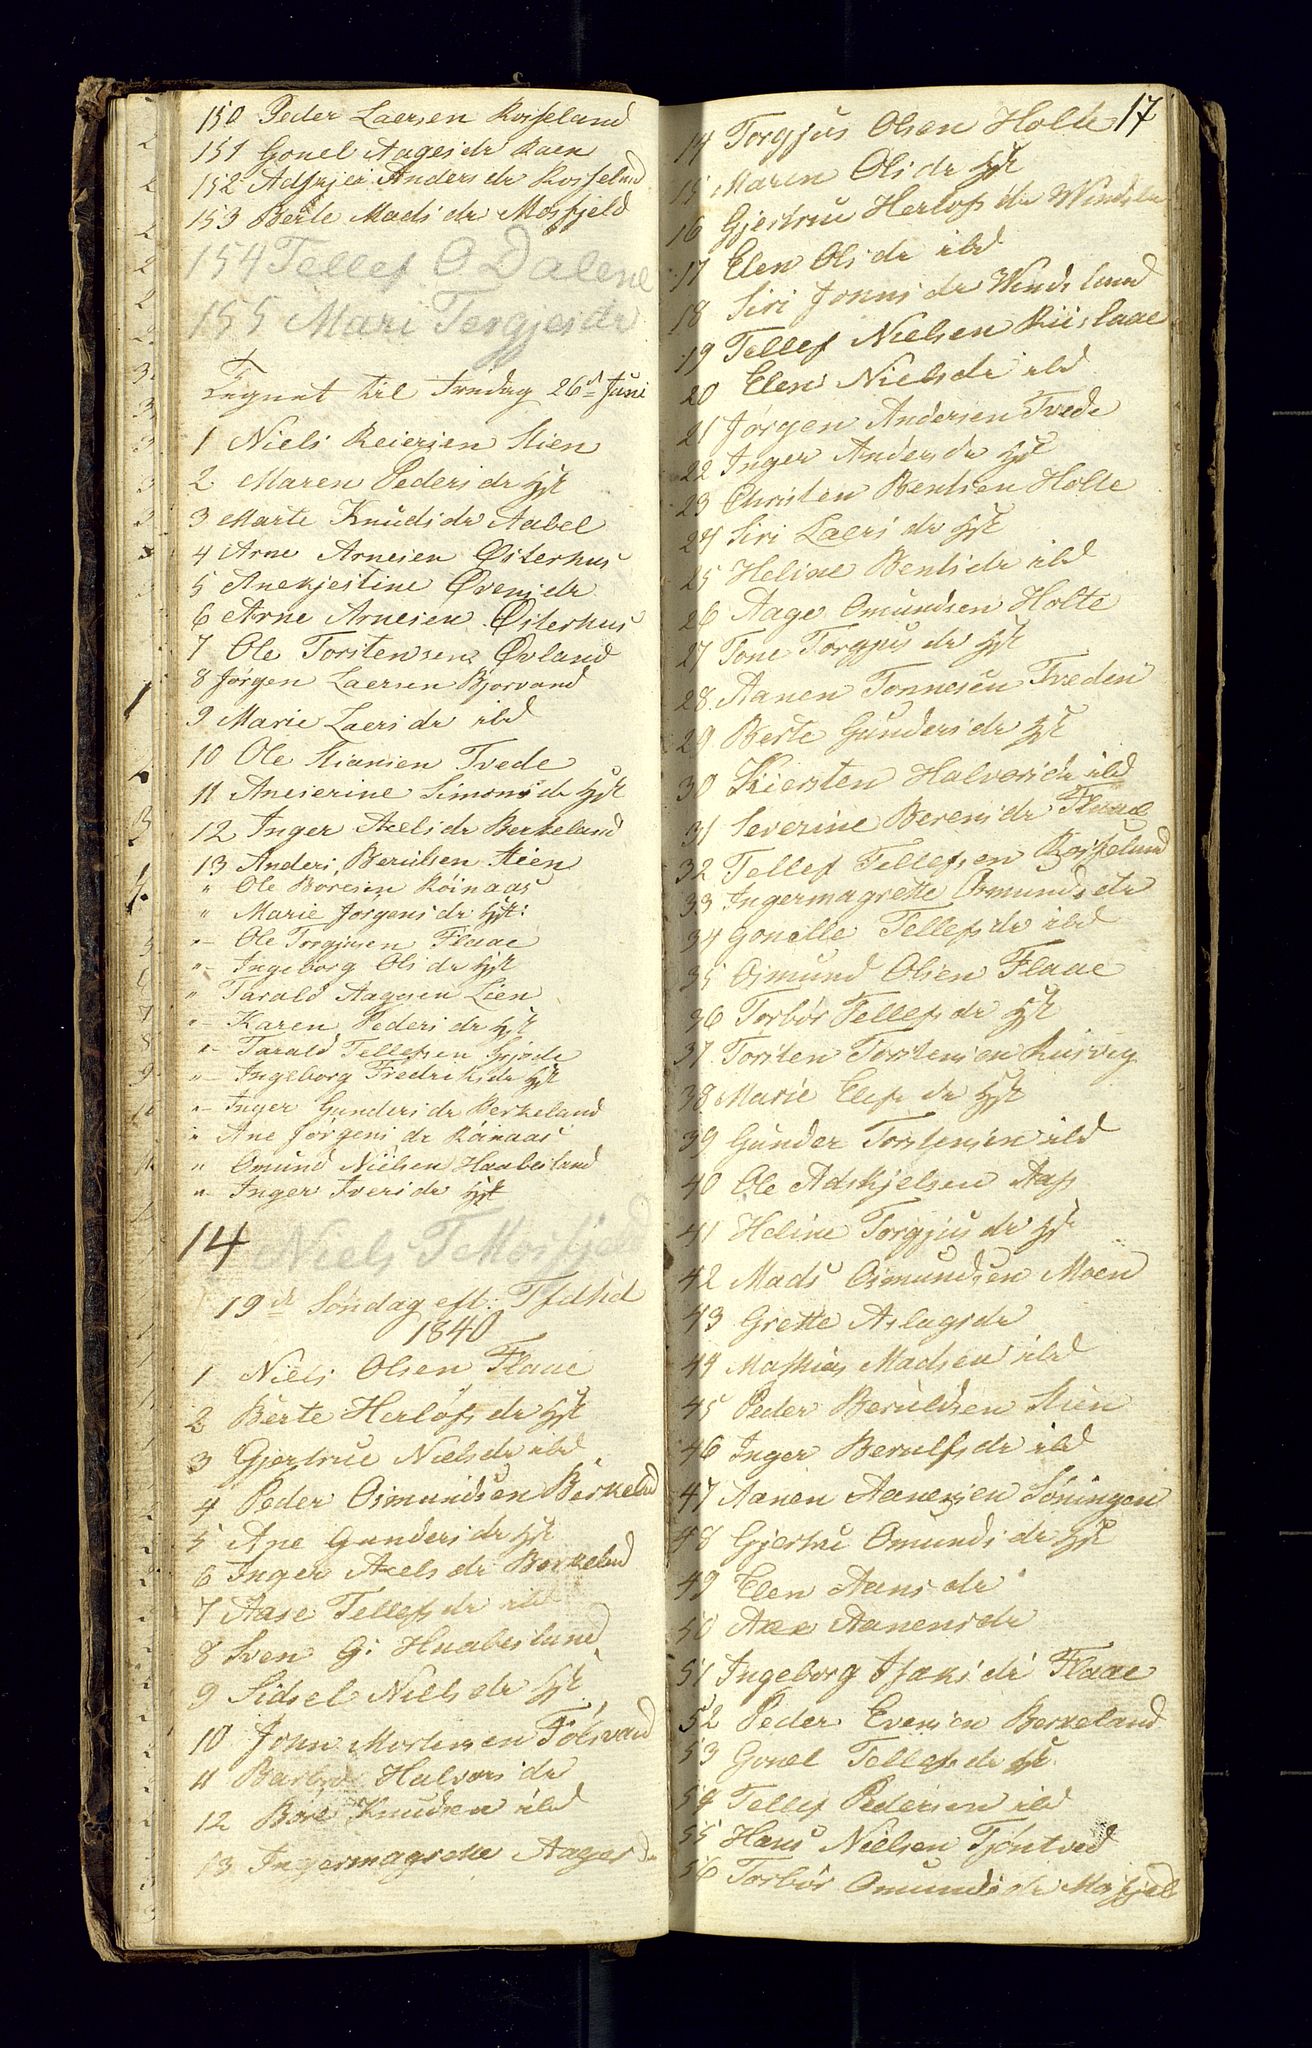 150 Peder Laersen Rosseland
151 Gonel Aagesdr Raen
152 Adskjer Andersdr Rosseland
153 Berte Madsdr Mosfjeld
154 Tellef O Dalene
155 Mari Tergjesdr
Tegnet til fredag 26d Juni
1 Niels Reiersen Stien
2 Maren Pedersdr hst
3 Marte Knudsdr Aabel
4 Arne Arnesen Østerhus
5 Anekjestine Øvensdr
6 Arne Arnesen Østerhus
7 Ole Torstensen Øvland
8 Jørgen Laersen Bjorvand
9 Marie Laersdr ibd
10 Ole Stiansen Tvede
11 Aneserine Simonsdr hst
12 Inger Axelsdr Berkeland
13 Anders Berulsen Stien
" Ole Boresen Röinaas
" Marie Jørgensdr hst:
" Ole Torgjusen Flaae
" Ingeborg Olsdr hst
" Tarald Aagesen Lien
" Karen Pedersdr hst
" Tarald Tellefsen
" Ingeborg Fredriksdr hst
" Inger Gundersdr Berkeland
" Ane Jørgensdr Röinaas
" Omund Nielsen Haabesland
" Inger Iversdr hst
14 Niels T Mosfjeld
19de Söndag eft: Tfdhd
1840
1 Niels Olsen Flaae
2 Berte Herlofsdr hst
3 Gjertrue Nielsdr ibd
4 Peder Osmundsen Berkeld
5 Ane Gundersdr hst
6 Inger Axelsdr Berkeland
7 Aase Tellefsdr ibd
8 Sven G: Haabesland
9 Sidsel Nielsdr hst
10 John Mortensen
11 Halvorsdr
12 Bore Knudsen ibd
13 Ingermagrette Aagesd
17
14 Torgjus Olsen Holte
15 Maren Olsdr hst
16 Gjertrue Herlofsdr
17 Elen Olsdr ibd
18 Siri Jonnsdr Windsland
19 Tellef Nielsen Riislaae
20 Elen Nielsdr ibd
21 Jørgen Andersen Tvede
22 Inger Andersdr hst
23 Christen Bentsen Holte
24 Siri Laersdr hst
25 Heline Bentsdr ibd
26 Aage Omundsen Holte
27 Tone Torgjusdr hst
28 Aanen Tonnesen Tveden
29 Berte Gundersdr hst
30 Kiersten Halvorsdr ibd
31 Severine Berensdr Flaae
32 Tellef Tellefsen Rosseland
33 Ingermagrette Osmundsdr
34 Gonelle Tellefsdr ibd
35 Osmund Olsen Flaae
36 Torbör Tellefsdr hst
37 Torsten Torstensen
38 Marie Elefsdr hst
39 Gunder Torstensen ibd
40 Ole Adskjelsen Aass
41 Heline Torgjusdr hst
42 Mads Osmundsen Moen
43 Grette Aslagsdr
44 Mathias Madsen ibd
45 Peder Beruldsen Stien
46 Inger Berulfsdr ibd
47 Aanen Aanensen Söningen
48 Gjertru Omundsdr hst
49 Elen Aansdr
50 Axe Aanensdr
51 Ingeborg Isaksdr Flaae
52 Peder Evensen Berkeland
53 Gonel Tellefsdr hst
54 Tellef Pedersen ibd
55 Hans Nielsen Tjöntved
56 Torbör Omundsdr Mosfjeld